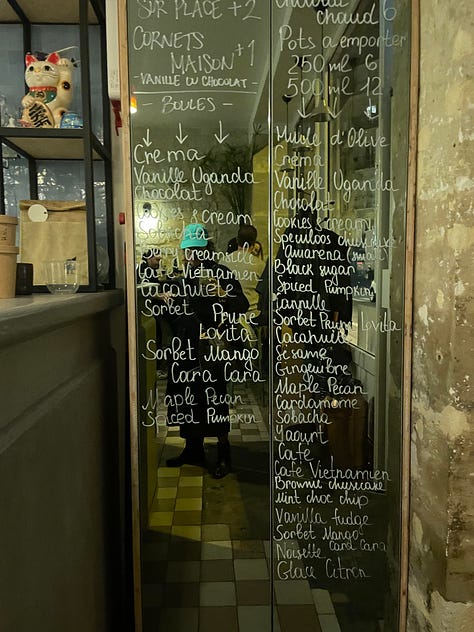 SUR PLACE +2
CORNETS
MAISON +1
- VANILLE OU CHOCOLAT -
- BOULES -
Crema
Vanille Uganda
Chocolat
Cookies & cream
Sobacha
Berry creamsicle
Café Vietnamien
Cacahuète
Sorbet Prune
Lovita
Sorbet Mango
Cara Cara
Maple Pecan
Spiced Pumpkin
chaud 6
Pots à emporter
250 ml 6
500 ml 12
Huile d'Olive
Crema
Vanille Uganda
Chocolat
Cookies & cream
Speculoos
Amarena
Black sugar
Spiced Pumpkin
Cannelle
Sorbet Prune Lovita
Cacahuète
Sésame
Gingembre
Maple Pecan
Cardamome
Sobacha
Yaourt
Café
Café Vietnamien
Brownie cheesecake
Mint choc chip
Vanilla fudge
Sorbet Mango
Cara Cara
Noisette
Glace Citron